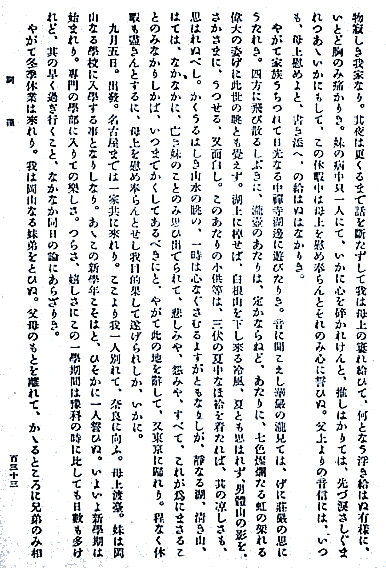 物寂しき我家なり。其夜は更くるまで話を斷たずして我は母上の窶れ給ひて、何となう浮き給はぬ有樣に、
いとゞ胸のみ痛かりき。妹の病中只一人にて、いかに心を碎かれけんと、推しはかりては、先づ淚さしぐま
れつあゝいかにもして、この休暇中は母上を慰め奉らんとそれのみ心に誓ひぬ。父上よりの音信には、いつ
も、母上慰めよと、書き添への給はぬはなかりき。
やがて家族うちつれて日光なる中禪寺湖邊に遊びたりき。音に聞こえし華嚴の瀧見ては、げに莊嚴の思に
うたれき。四方に飛び散るしぶきに、瀧壺のあたりは、定かならねど、あたりに、七色燦爛たる虹の架れる
偉大の姿げに此世の眺とも覺えず。湖上に棹せば、白根山を下し來る冷風、夏とも思はれず、男體山の影を、
さかさまに、うつせる、又面白し。このあたりの小供等は、三伏の夏中なほ袷を着たれば、其の凉しさも、
思はれぬべし。かくうるはしき山水の眺め、一時は心なぐさむるよすがともなりしが、靜なる湖、淸き山、
はては、なかなかに、亡き妹のことのみ思ひ出でられて、悲しみや、怨みや、すべて、これが爲にまさるこ
とのみなりしかば、いつまでかくしてあるべきにと、やがて此の地を辭して、又東京に歸れり。程なく休
暇も盡きんとするに、母上を慰め奉らんとせし我目的果して遂げられしか、いかに。
九月五日。出發。名古屋までは一家共に來れり。こゝより我一人別れて、奈良に向ふ。母上渡臺。妹は岡
山なる學校に入學する事となりしなり。あゝこの新學年こそはと、ひそかに一人誓ひぬ。いよいよ新學期は
始まれり。專門の學部に入りての樂しさ。つらさ、嬉しさにこの一學期間は豫科の時に比しても日數も多け
れど、其の早く過ぎ行くこと、なかなか同日の論にあらざりき。
やがて冬季休業は來れり。我は岡山なる妹弟をとひぬ。父母のもとを離れて、かゝるところに兄弟のみ相
百三十三